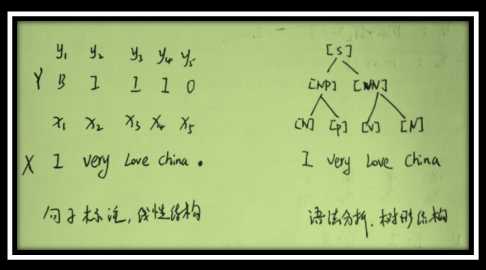 y₁ y₂ y₃ y₄ y₅
Y B I I I O
x₁ x₂ x₃ x₄ x₅
X I very Love China .
句子标注，线性结构
[S]
[NP] [NN]
[N] [P] [V] [N]
I very Love China
语法分析．树形结构